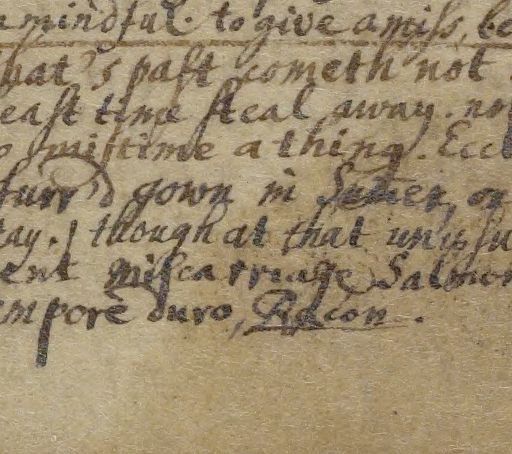 mindful. to give amiss, be
hat's past cometh not
east time steal away. no
mistime a thing. Eccl
furr'd gown in or
tay. though at that
ent miscarriage Salmon
empore duro, Bacon.